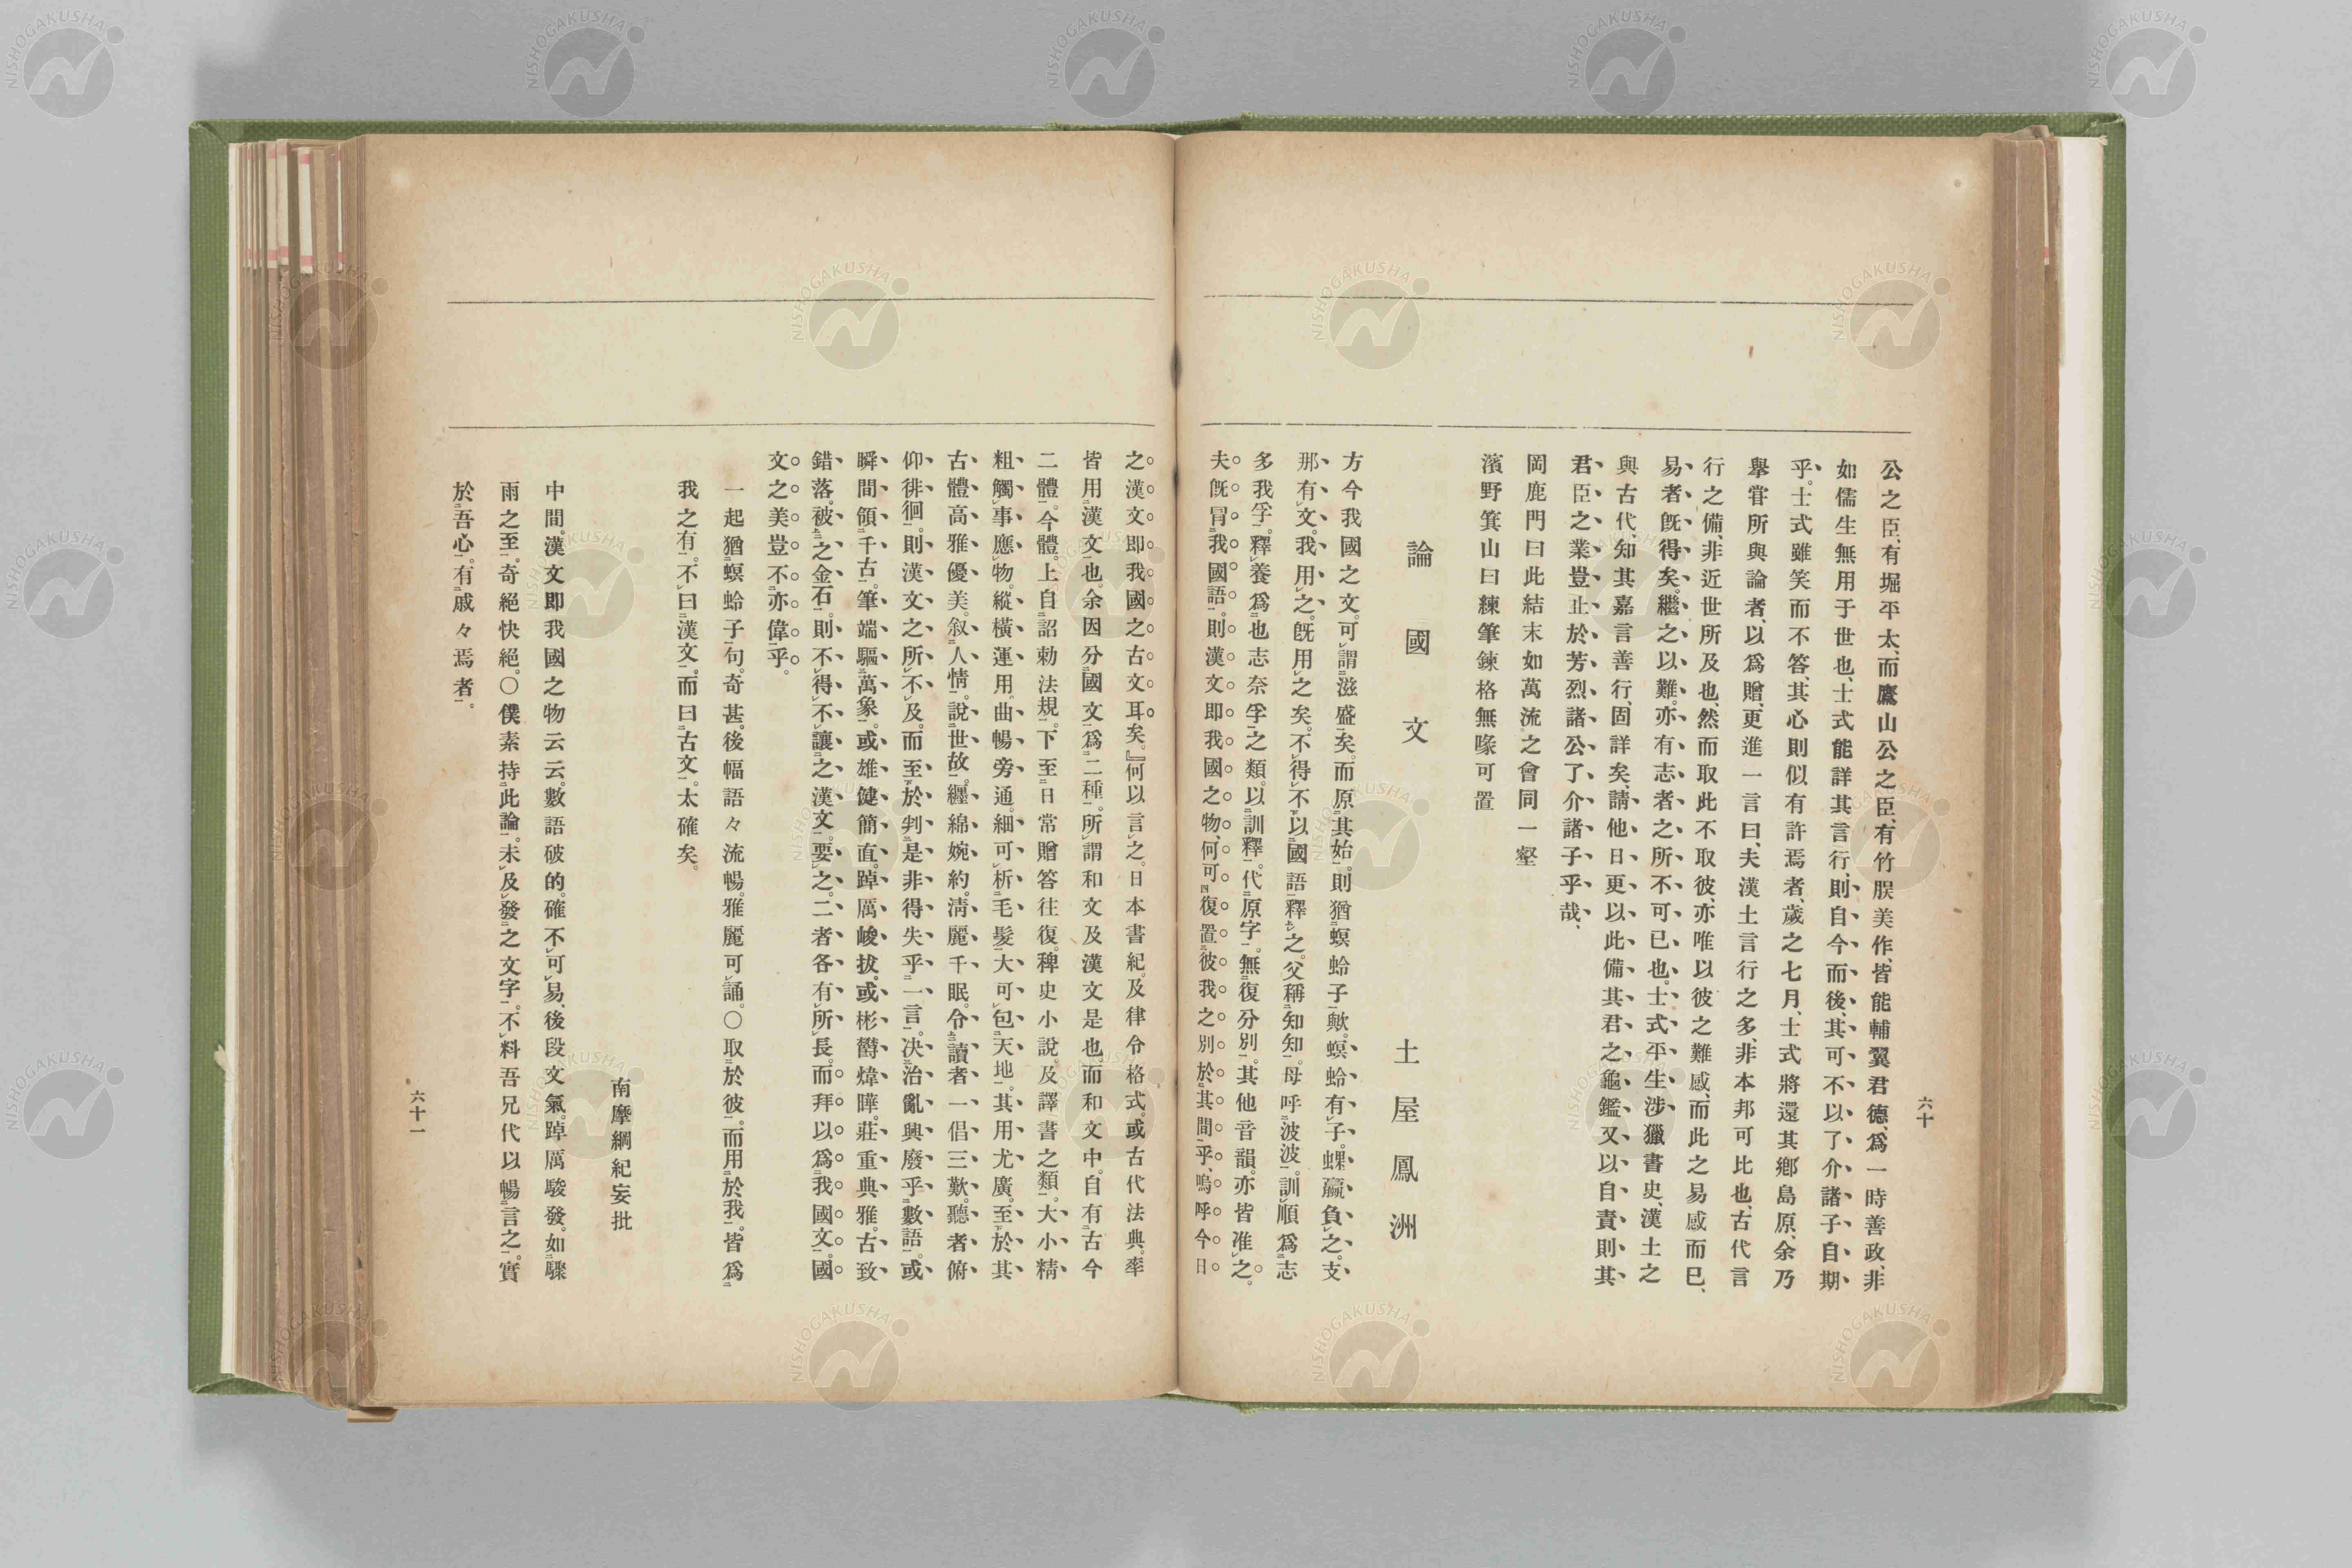 六十
公之臣、有堀平太、而鷹山公之臣、有竹股美作、皆能輔翼君德、爲一時善政、非
如儒生無用于世也、士式能詳其言行、則自今而後、其可不以了介諸子自期
乎。士式雖笑而不答、其心則似有許焉者、歲之七月、士式將還其鄕島原、余乃
擧甞所與論者、以爲贈、更進一言曰、夫漢土言行之多、非本邦可比也、古代言
行之備、非近世所及也、然而取此不取彼、亦唯以彼之難感、而此之易感而已、
易者旣得矣。繼之以難。亦有志者之所不可已也。士式平生涉獵書史、漢土之
與古代、知其嘉言善行、固詳矣、請他日更以此備其君之龜鑑、又以自責、則其
君臣之業、豈止於芳烈諸公、了介諸子乎哉、
岡鹿門曰此結末如萬流之會同一壑
濱野箕山曰練筆鍊格無喙可置
論國文
土屋鳳洲
方今我國之文。可謂滋盛矣。而原其始。則猶螟蛉子歟。螟蛉有子。蜾蠃負之。支
那有文。我用之。旣用之矣。不得不以國語釋之。父稱知知。母呼波波。訓順爲志
多我孚。釋養爲也志奈孚之類。以訓釋。代原字。無復分別。其他音韻。亦皆准之。
夫旣冒我國語。則漢文卽我國之物、何可復置彼我之別於其間乎、嗚呼今日
之漢文卽我國之古文耳矣。』何以言之。日本書紀。及律令格式。或古代法典。率
皆用漢文也。余因分國文爲二種。所謂和文及漢文是也。而和文中。自有古今
二體。今體。上自詔勅法規。下至日常贈答往復。稗史小說。及譯書之類。大小精
粗。觸事應物。縱橫運用。曲暢旁通。細可析毛髮。大可包天地。其用尤廣。至於其
古體高雅優美。叙人情。說世故。纒綿婉約。淸麗千眠。令讀者一倡三歎。聽者俯
仰徘徊。則漢文之所不及。而至於判是非得失乎一言。決治亂興廢乎數語。或
瞬間領千古。筆端驅萬象。或雄健簡直。踔厲峻拔。或彬欝煒曄。莊重典雅。古致
錯落。被之金石。則不得不讓之漢文。要之。二者各有所長。而拜以爲我國文。國
文之美。豈不亦偉乎。
一起猶螟蛉子句。奇甚。後幅語々流暢。雅麗可誦。〇取於彼。而用於我。皆爲
我之有。不曰漢文。而曰古文。太確矣。
南摩綱紀妄批
中間。漢文卽我國之物云云。數語破的。確不可易、後段文氣。踔厲駿發。如驟
雨之至。奇絕快絕。〇僕素持此論。未及發之文字。不料吾兄代以暢言之。實
於吾心。有戚々焉者。
六十一